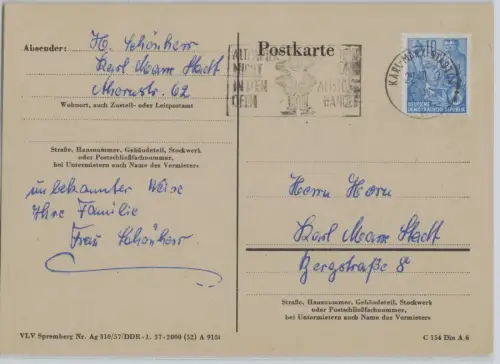 Absender: H. Schönherr
Karl Marx Stadt
Ahornstr. 62
Wohnort, auch Zustell- oder Leitpostamt
Straße, Hausnummer, Gebäudeteil, Stockwerk
oder Postschließfachnummer,
bei Untermietern auch Name des Vermieters
unbekannter Weise
Ihre Familie
Frau Schönherr
VLV Spremberg Nr. Ag 310/57/DDR-1. 57-2000 (52) A 915b
Postkarte
NICHT
IN DEN
KARL-MARX-STADT
10
DEUTSCHE
DEMOKRATISCHE REPUBLIK
Herrn Horn
Karl Marx Stadt
Bergstraße 8
Straße, Hausnummer, Gebäudeteil, Stockwerk
oder Postschließfachnummer,
bei Untermietern auch Name des Vermieters
C 154 Din A 6